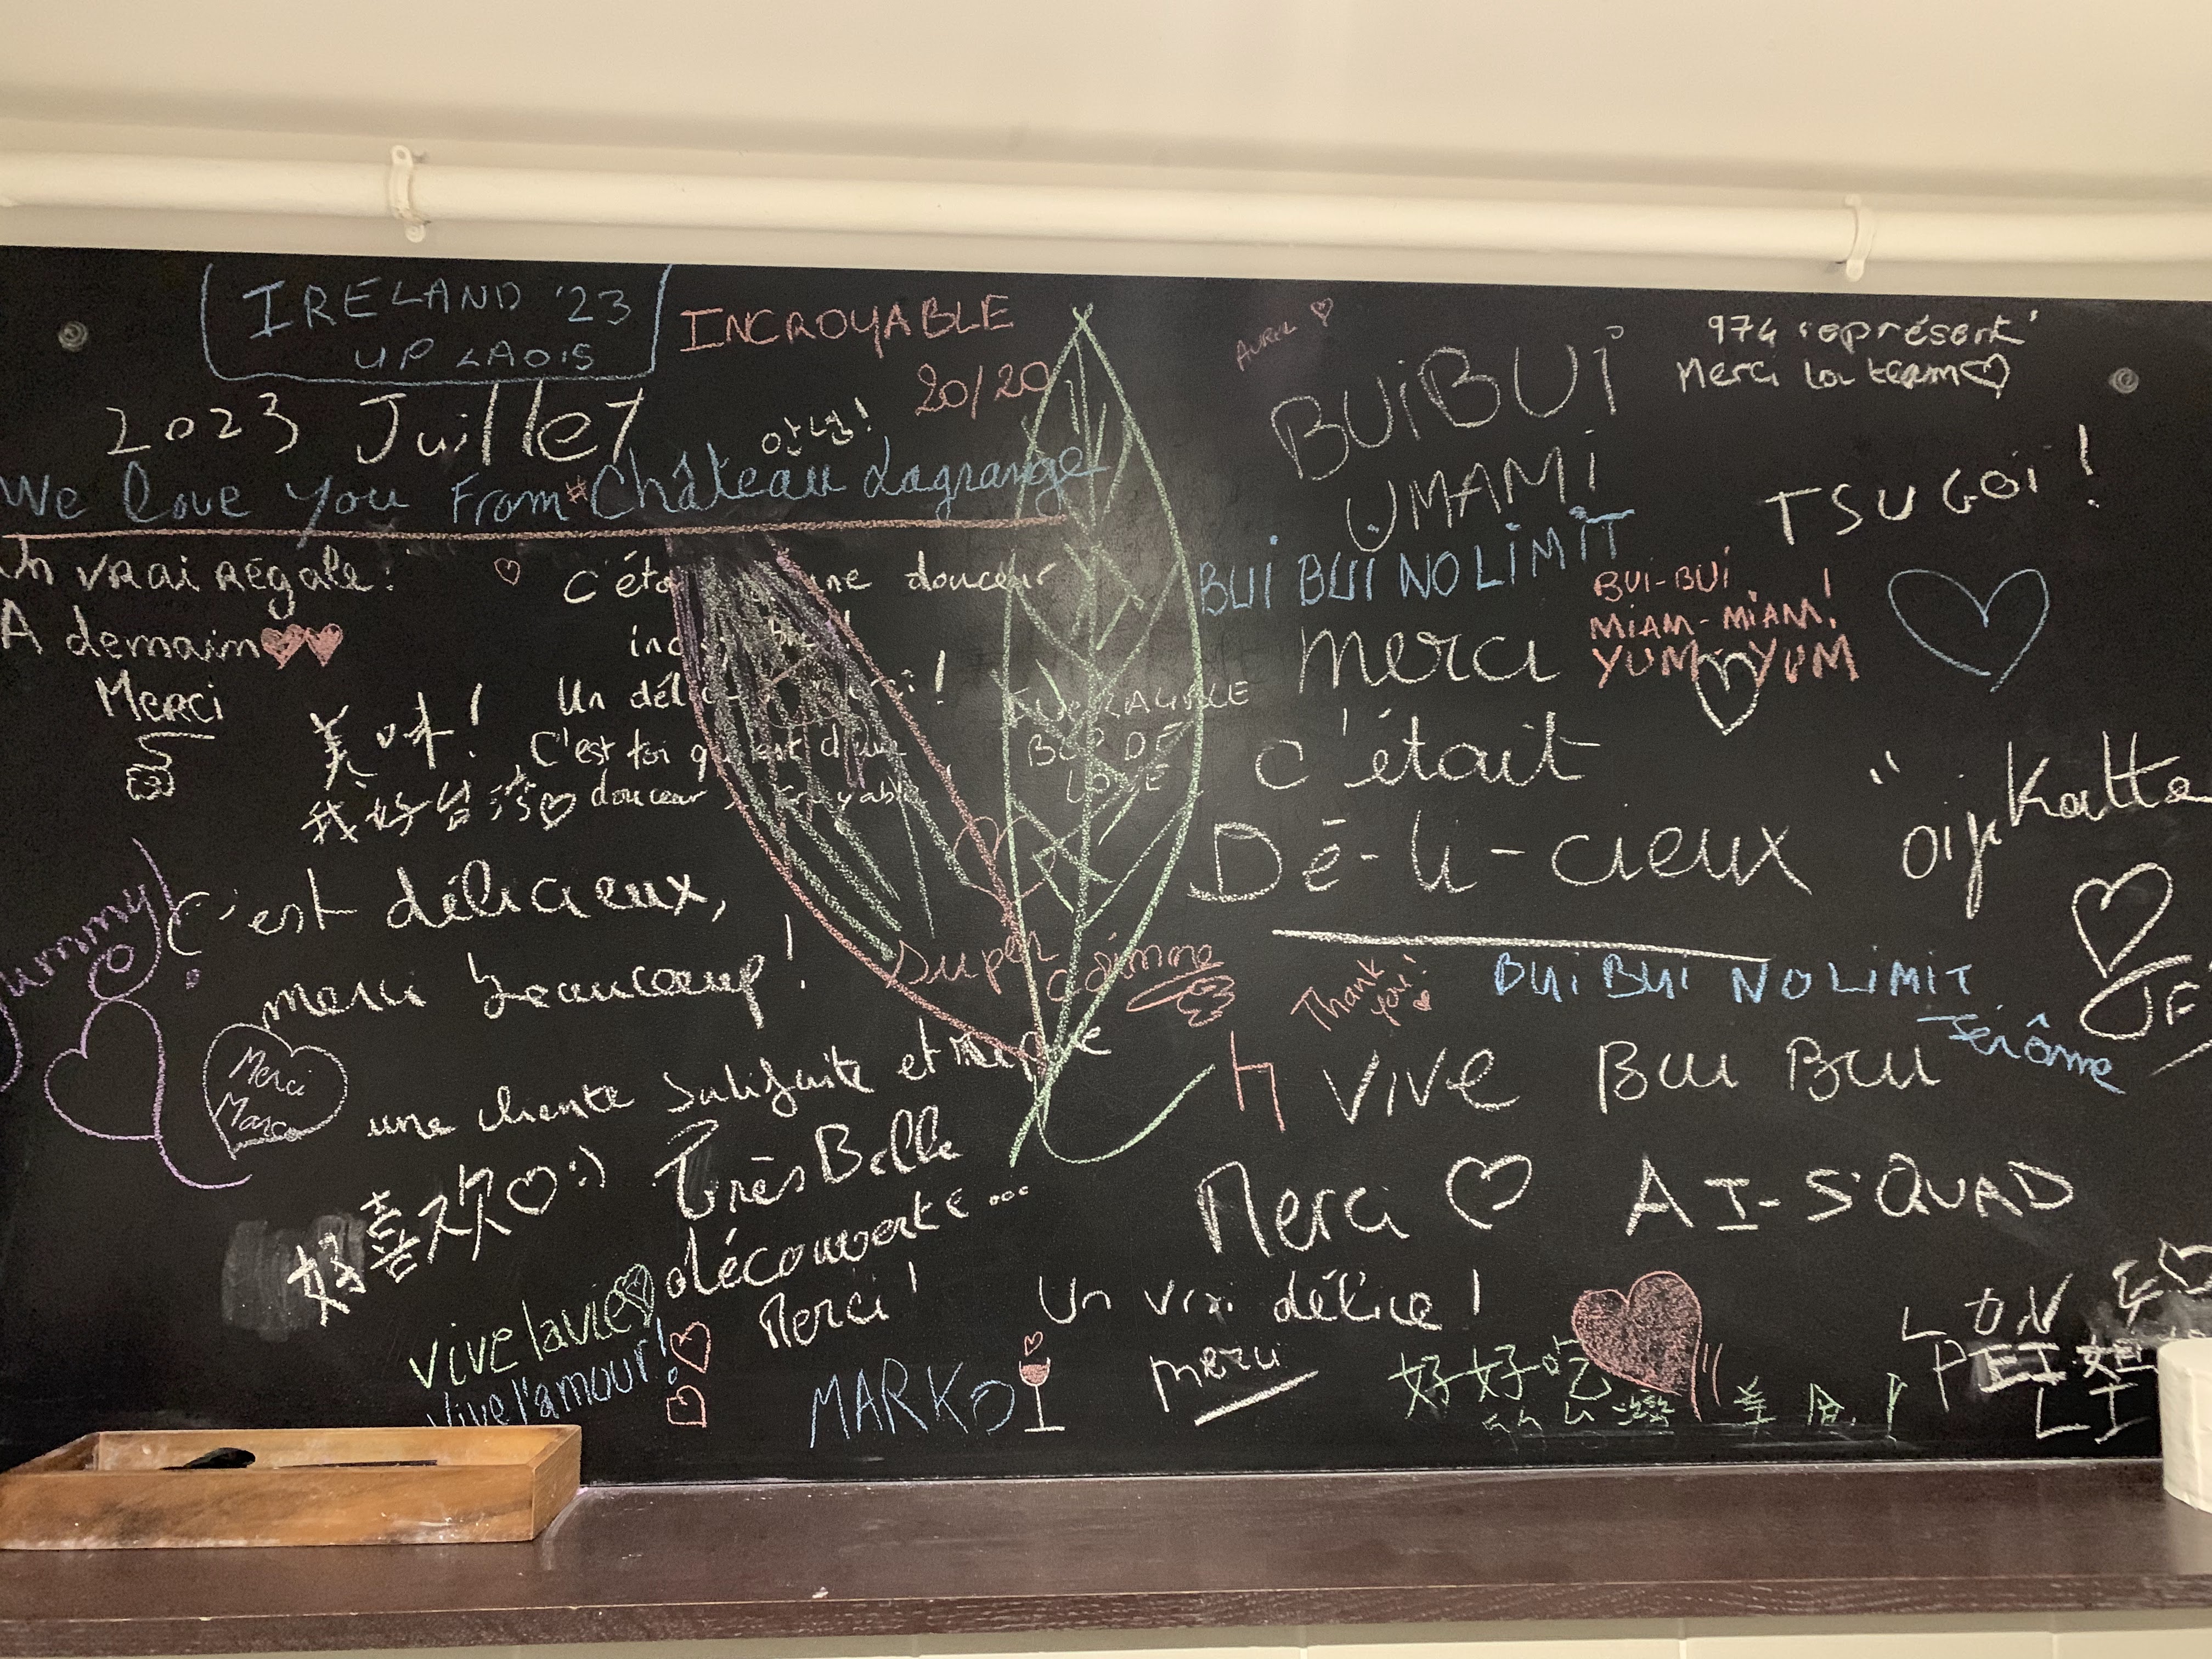 IRELAND '23
UP LAOIS
INCROYABLE
20/20
2023 Juillet
안녕!
We love you From Château Lagrange
Un vrai régale!
A demain
Merci
c'éta ne douceur
Un dél
C'est toi q est d'une
douceur
美味!
我好台湾
C'est délicieux,
merci beaucoup!
une cliente satisfaite et
yummy
Merci
Marco
好喜欢 :)
Très Belle
découverte...
Merci!
Vive la vie
Vive l'amour!
MARKO
BOR DE
LOVE
super
Avril
BUiBUi
UMAMi
BUI BUI NO LIMIT
974 représent'
Merci la team
TSUGOI !
BUI-BUI
MIAM-MIAM!
YUM-YUM
merci
c'était
Dé-li-cieux
"oijkatta
JF
Thank
you!
BUI BUI NO LIMIT
Jérôme
VIVE BUI BUI
Merci AI-SQUAD
Un vrai délice !
merci
好好吃
台灣
LON
PEI
LI